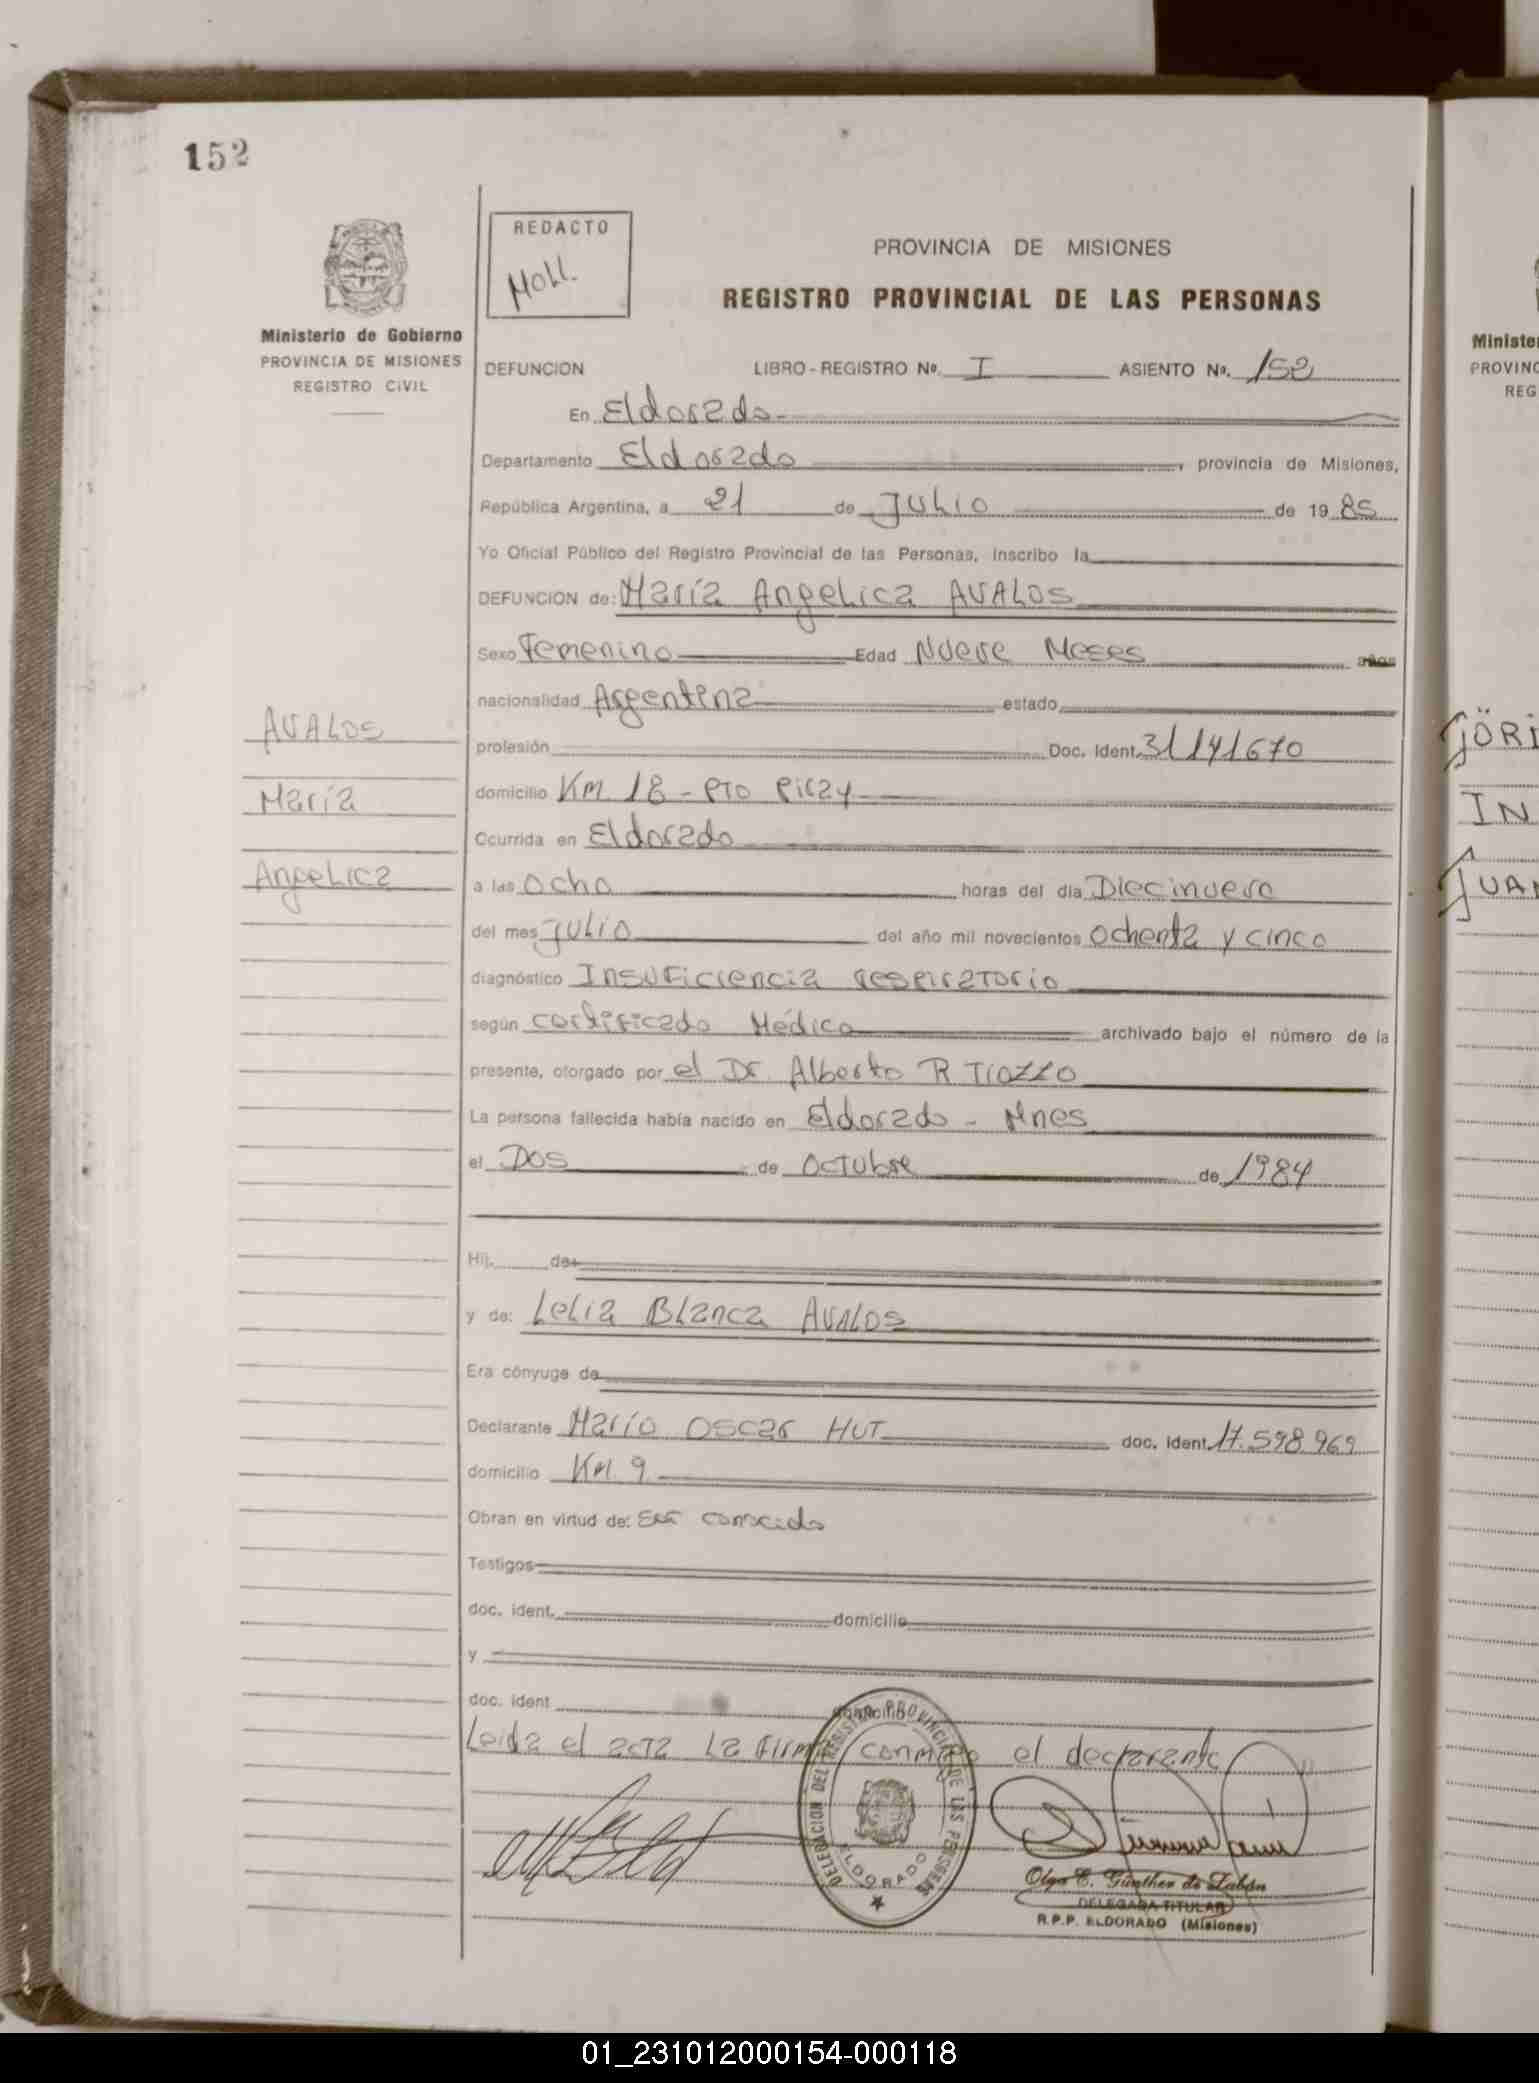 152
REDACTO
Moll.
PROVINCIA DE MISIONES
REGISTRO PROVINCIAL DE LAS PERSONAS
Ministerio de Gobierno
PROVINCIA DE MISIONES
REGISTRO CIVIL
DEFUNCION LIBRO - REGISTRO Nº. I ASIENTO Nº. 152
En Eldorado
Departamento Eldorado, provincia de Misiones,
República Argentina, a 21 de Julio de 1985
Yo Oficial Público del Registro Provincial de las Personas, inscribo la
DEFUNCION de: María Angelica AVALOS
Sexo Femenino Edad Nueve Meses años
nacionalidad Argentina estado
AVALOS
María
Angelica
profesión Doc. Ident. 31141670
domicilio Km 18 - Pto Piray
Ocurrida en Eldorado
a las Ocho horas del día Diecinueve
del mes Julio del año mil novecientos Ochenta y cinco
diagnóstico Insuficiencia respiratorio
según certificado Médico archivado bajo el número de la
presente, otorgado por el Dr. Alberto R Tiozzo
La persona fallecida había nacido en Eldorado - Mnes
el Dos de Octubre de 1984
Hij. de:
y de: Lelia Blanca AVALOS
Era cónyuge de
Declarante Mario Oscar HUT doc. ident. 17.598.969
domicilio Km. 9
Obran en virtud de: Ser conocido
Testigos
doc. ident. domicilio
y
doc. ident domicilio
Leida el acta La firma conmigo el declarante
DELEGACION DEL REGISTRO PROVINCIAL DE LAS PERSONAS
ELDORADO
Olga E. Günther de Labán
DELEGADA TITULAR
R.P.P. ELDORADO (Misiones)
Ministe
PROVINC
REG
JÖRI
IN
JUAN
01_231012000154-000118